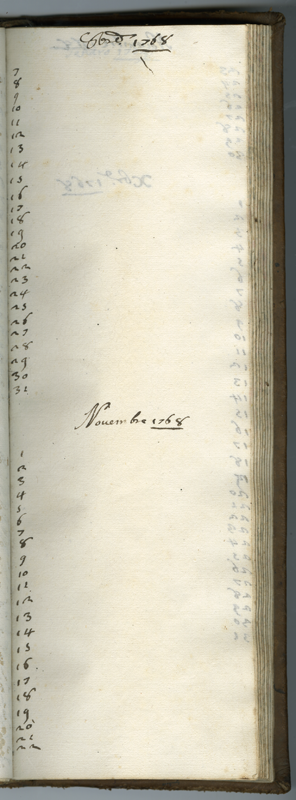 1768
7
8
9
10
11
12
13
14
15
16
17
18
19
20
21
22
23
24
25
26
27
28
29
30
31
Novembre 1768
1
2
3
4
5
6
7
8
9
10
11
12
13
14
15
16
17
18
19
20
21
22